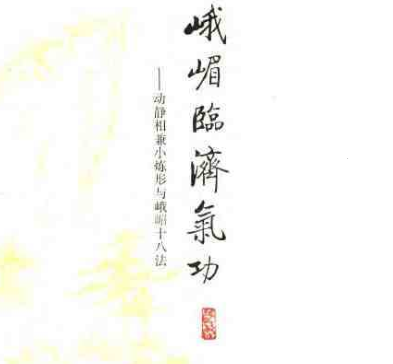 峨嵋臨濟氣功
——动静相兼小炼形与峨嵋十八法